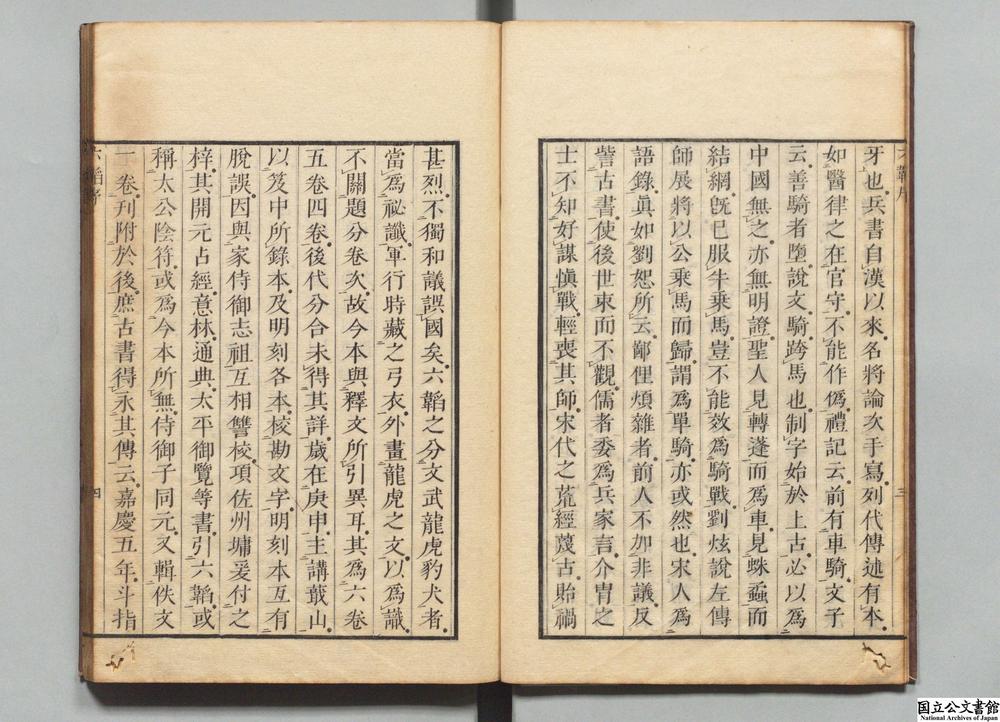 牙也兵書自漢以來名將論次手寫列代傳述有本
如醫律之在官守不能作僞禮記云前有車騎文子
云善騎者墮說文騎跨馬也制字始於上古必以爲
中國無之亦無明證聖人見轉蓬而爲車見蛛蝥而
結網旣巳服牛乘馬豈不能效爲騎戰劉炫說左傳
師展將以公乘馬而歸謂爲單騎亦或然也宋人爲
語錄眞如劉恕所云鄙俚煩雜者前人不加非議反
訾古書使後世束而不觀儒者委爲兵家言介冑之
士不知好謀愼戰輕喪其師宋代之荒經蔑古貽禍
三
甚烈不獨和議誤國矣六韜之分文武龍虎豹犬者
當爲祕讖軍行時藏之弓衣外畫龍虎之文以爲識
不關題分卷次故今本與釋文所引異耳其爲六卷
五卷四卷後代分合未得其詳歲在庚申主講蕺山
以笈中所錄本及明刻各本校勘文字明刻本互有
脫誤因與家侍御志祖互相讐校項佐州墉爰付之
梓其開元占經意林通典太平御覽等書引六韜或
稱太公陰符或爲今本所無侍御子同元又輯佚文
一卷刊附於後庶古書得永其傳云嘉慶五年斗指
四
国立公文書館
National Archives of Japan